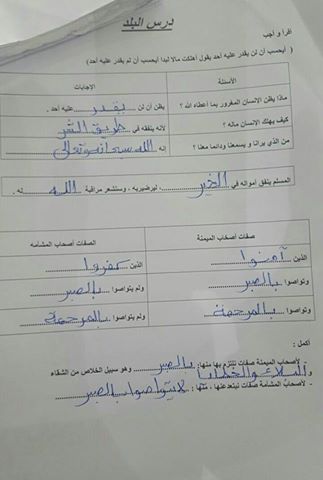 درس البلد
اقرأ و أجب
( أيحسب أن لن يقدر عليه أحد يقول أهلكت مالا لبدا أيحسب أن لم يقدر عليه أحد )
الأسئلة الإجابات
ماذا يظن الانسان المغرور بما أعطاه الله ؟ يظن أن لن يقدر عليه أحد .
كيف يهلك الإنسان ماله ؟ لأنه ينفقه في طريق الشر
من الذي يرانا و يسمعنا ودائما معنا ؟ إنه الله سبحانه وتعالى
المسلم ينفق أمواله في الخير ، ليرضيربه ، وستشعر مراقبة الله له .
صفات أصحاب الميمنة الصفات أصحاب المشأمه
الذين آمنوا الذين كفروا
وتواصوا بالصبر ولم يتواصوا بالصبر
وتواصوا بالمرحمة ولم يتواصوا بالمرحمة
أكمل :
- لأصحاب الميمنة صفات نلتزم بها منها: بالصبر وهو سبيل الخلاص من الشقاء
و البلاء والخطايا
- لأصحاب المشأمة صفات نبتعدعنها ، منها : لا يتواصوا بالصبر